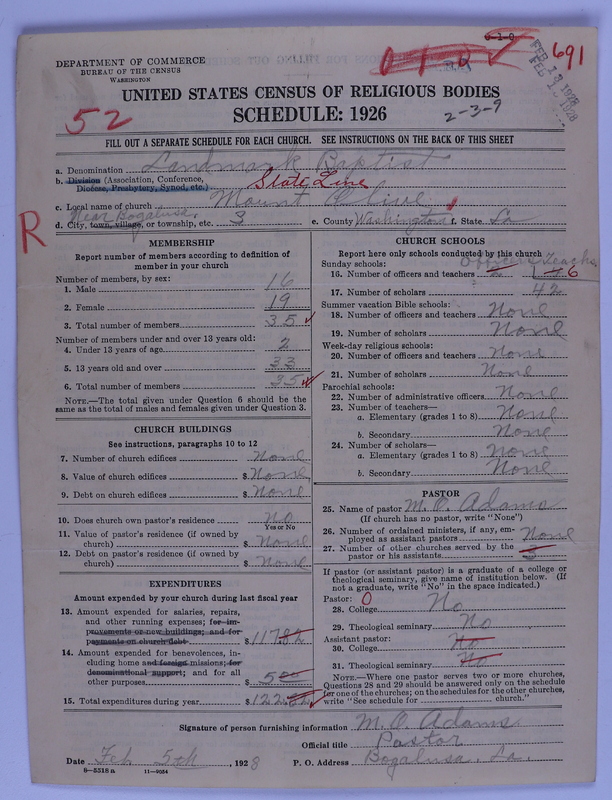 0-1-0
0 1 0
691
FEB 13 1928
DEPARTMENT OF COMMERCE
BUREAU OF THE CENSUS
WASHINGTON
UNITED STATES CENSUS OF RELIGIOUS BODIES
52
SCHEDULE: 1926
2-3-9
FILL OUT A SEPARATE SCHEDULE FOR EACH CHURCH. SEE INSTRUCTIONS ON THE BACK OF THIS SHEET
a. Denomination Landmark Baptist
b. Division (Association, Conference, Diocese, Presbytery, Synod, etc.) State Line
c. Local name of church Mount Olive
R
d. City, town, village, or township, etc. Near Bogalusa, 3 e. County Washington f. State La
MEMBERSHIP
Report number of members according to definition of
member in your church
Number of members, by sex:
1. Male 16
2. Female 19
3. Total number of members 35
Number of members under and over 13 years old:
4. Under 13 years of age 2
5. 13 years old and over 33
6. Total number of members 35
NOTE.—The total given under Question 6 should be
same as the total of males and females given under Question 3.
CHURCH BUILDINGS
See instructions, paragraphs 10 to 12
7. Number of church edifices None
8. Value of church edifices $ None
9. Debt on church edifices $ None
10. Does church own pastor's residence No
Yes or No
11. Value of pastor's residence (if owned by
church) $ None
12. Debt on pastor's residence (if owned by
church) $ None
EXPENDITURES
Amount expended by your church during last fiscal year
13. Amount expended for salaries, repairs,
and other running expenses; for im-
provements or new buildings; and for
payments on church debt $ 117.82
14. Amount expended for benevolences, in-
cluding home and foreign missions; for
denominational support; and for all
other purposes $ 5.00
15. Total expenditures during year $ 122.82
CHURCH SCHOOLS
Report here only schools conducted by this church
Sunday schools: Officers Teachs
16. Number of officers and teachers 2 6
17. Number of scholars 42
Summer vacation Bible schools:
18. Number of officers and teachers None
19. Number of scholars None
Week-day religious schools:
20. Number of officers and teachers None
21. Number of scholars None
Parochial schools:
22. Number of administrative officers None
23. Number of teachers—
a. Elementary (grades 1 to 8) None
b. Secondary None
24. Number of scholars—
a. Elementary (grades 1 to 8) None
b. Secondary None
PASTOR
25. Name of pastor M. O. Adams
(If church has no pastor, write "None")
26. Number of ordained ministers, if any, em-
ployed as assistant pastors None
27. Number of other churches served by the
pastor or his assistants
If pastor (or assistant pastor) is a graduate of a college or
theological seminary, give name of institution below. (If
not a graduate, write "No" in the space indicated.)
Pastor: 0
28. College No
29. Theological seminary No
Assistant pastor:
30. College No
31. Theological seminary No
NOTE.—Where one pastor serves two or more churches,
Questions 28 and 29 should be answered only on the schedule
for one of the churches; on the schedules for the other churches,
write "See schedule for church."
Signature of person furnishing information M. O. Adams
Official title Pastor
Date Feb 5th, 1928 P. O. Address Bogalusa, La.
8-5518 a 11-9034